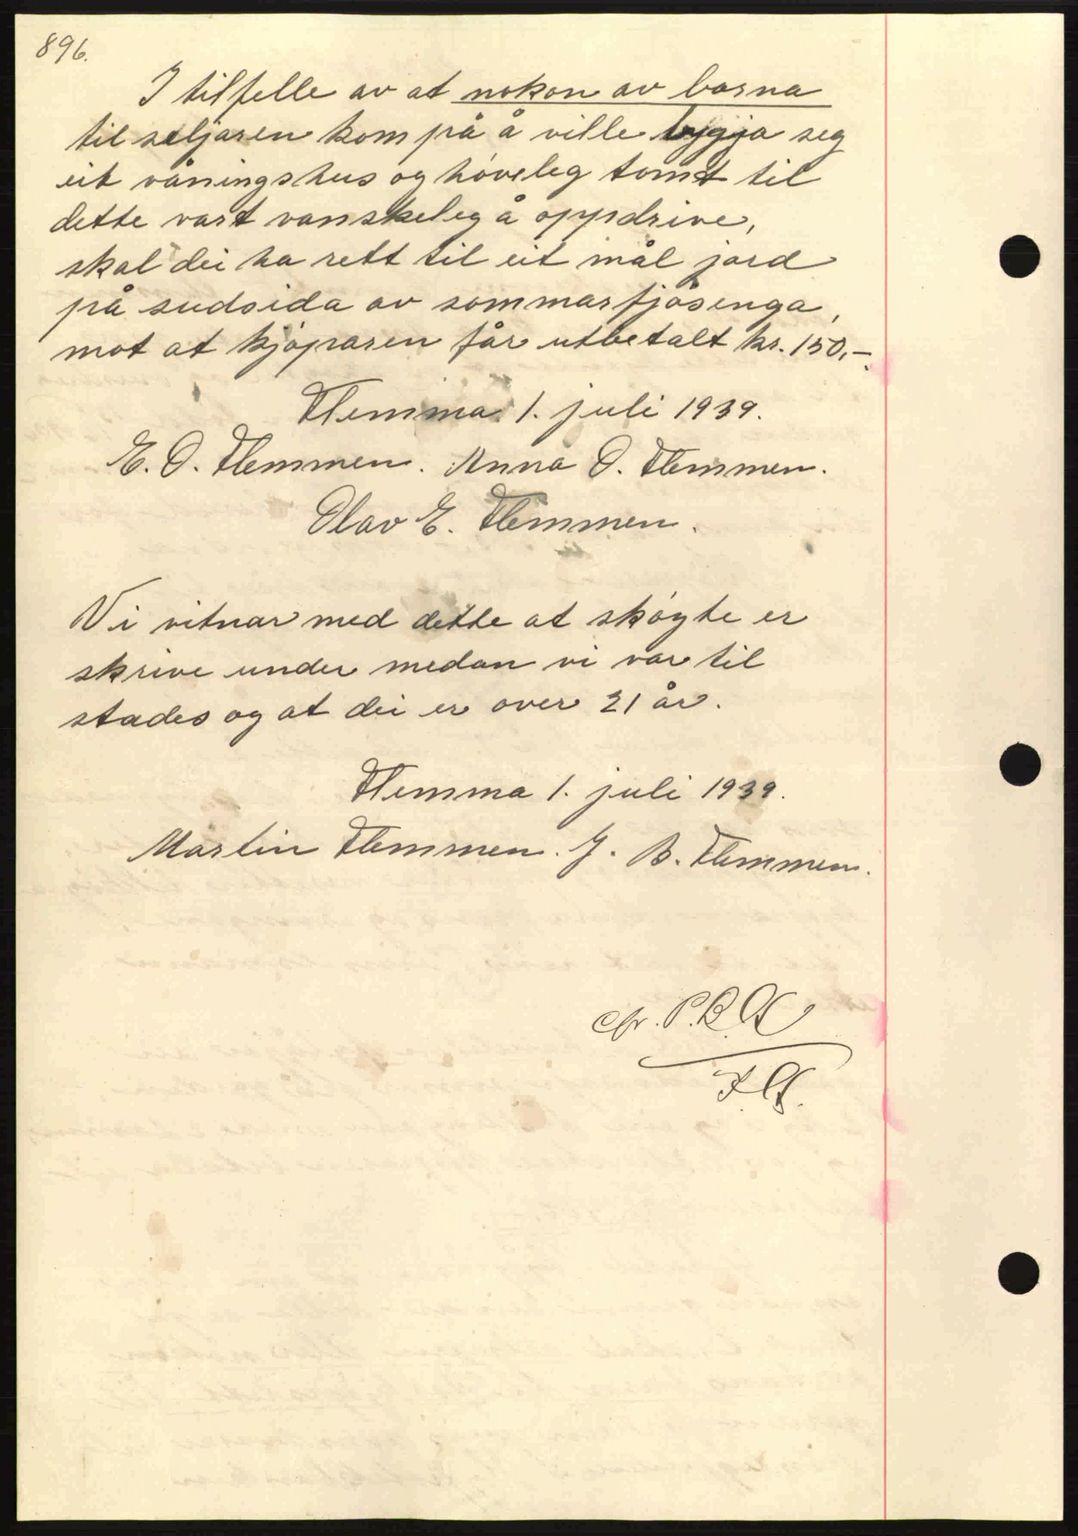 896.
I tilfelle av at nokon av borna
til seljaren kom på å ville byggja seg
eit våningshus og høveleg tomt til
dette vart vanskeleg å oppdrive,
skal dei ha rett til eit mål jord
på sudsida av sommarfjøsenga,
mot at kjøparen får utbetalt kr. 150,-.
Hemma 1. juli 1939.
E. O. Hemmen. Anna O. Hemmen.
Olav E. Hemmen.
Vi vitnar med dette at skøyte er
skrive under medan vi var til
stades og at dei er over 21 år.
Hemma 1. juli 1939.
Martin Hemmen. J. B. Hemmen.